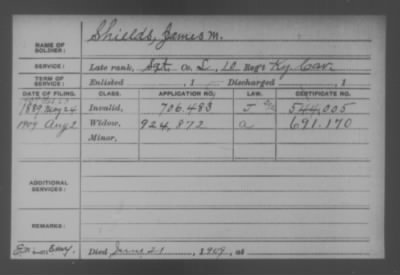 NAME OF SOLDIER: Shields, James M.
SERVICE: Late rank, Sgt Co. L, 10 Reg't Ky. Cav.
TERM OF SERVICE: Enlisted , 1 Discharged , 1
DATE OF FILING. CLASS. APPLICATION NO. LAW. CERTIFICATE NO.
1889 May 24 Invalid, 706.483 J 544,005
1909 Aug 2 Widow, 924,872 a 691.170
Minor,
ADDITIONAL SERVICES:
REMARKS:
Died June 21, 1909, at